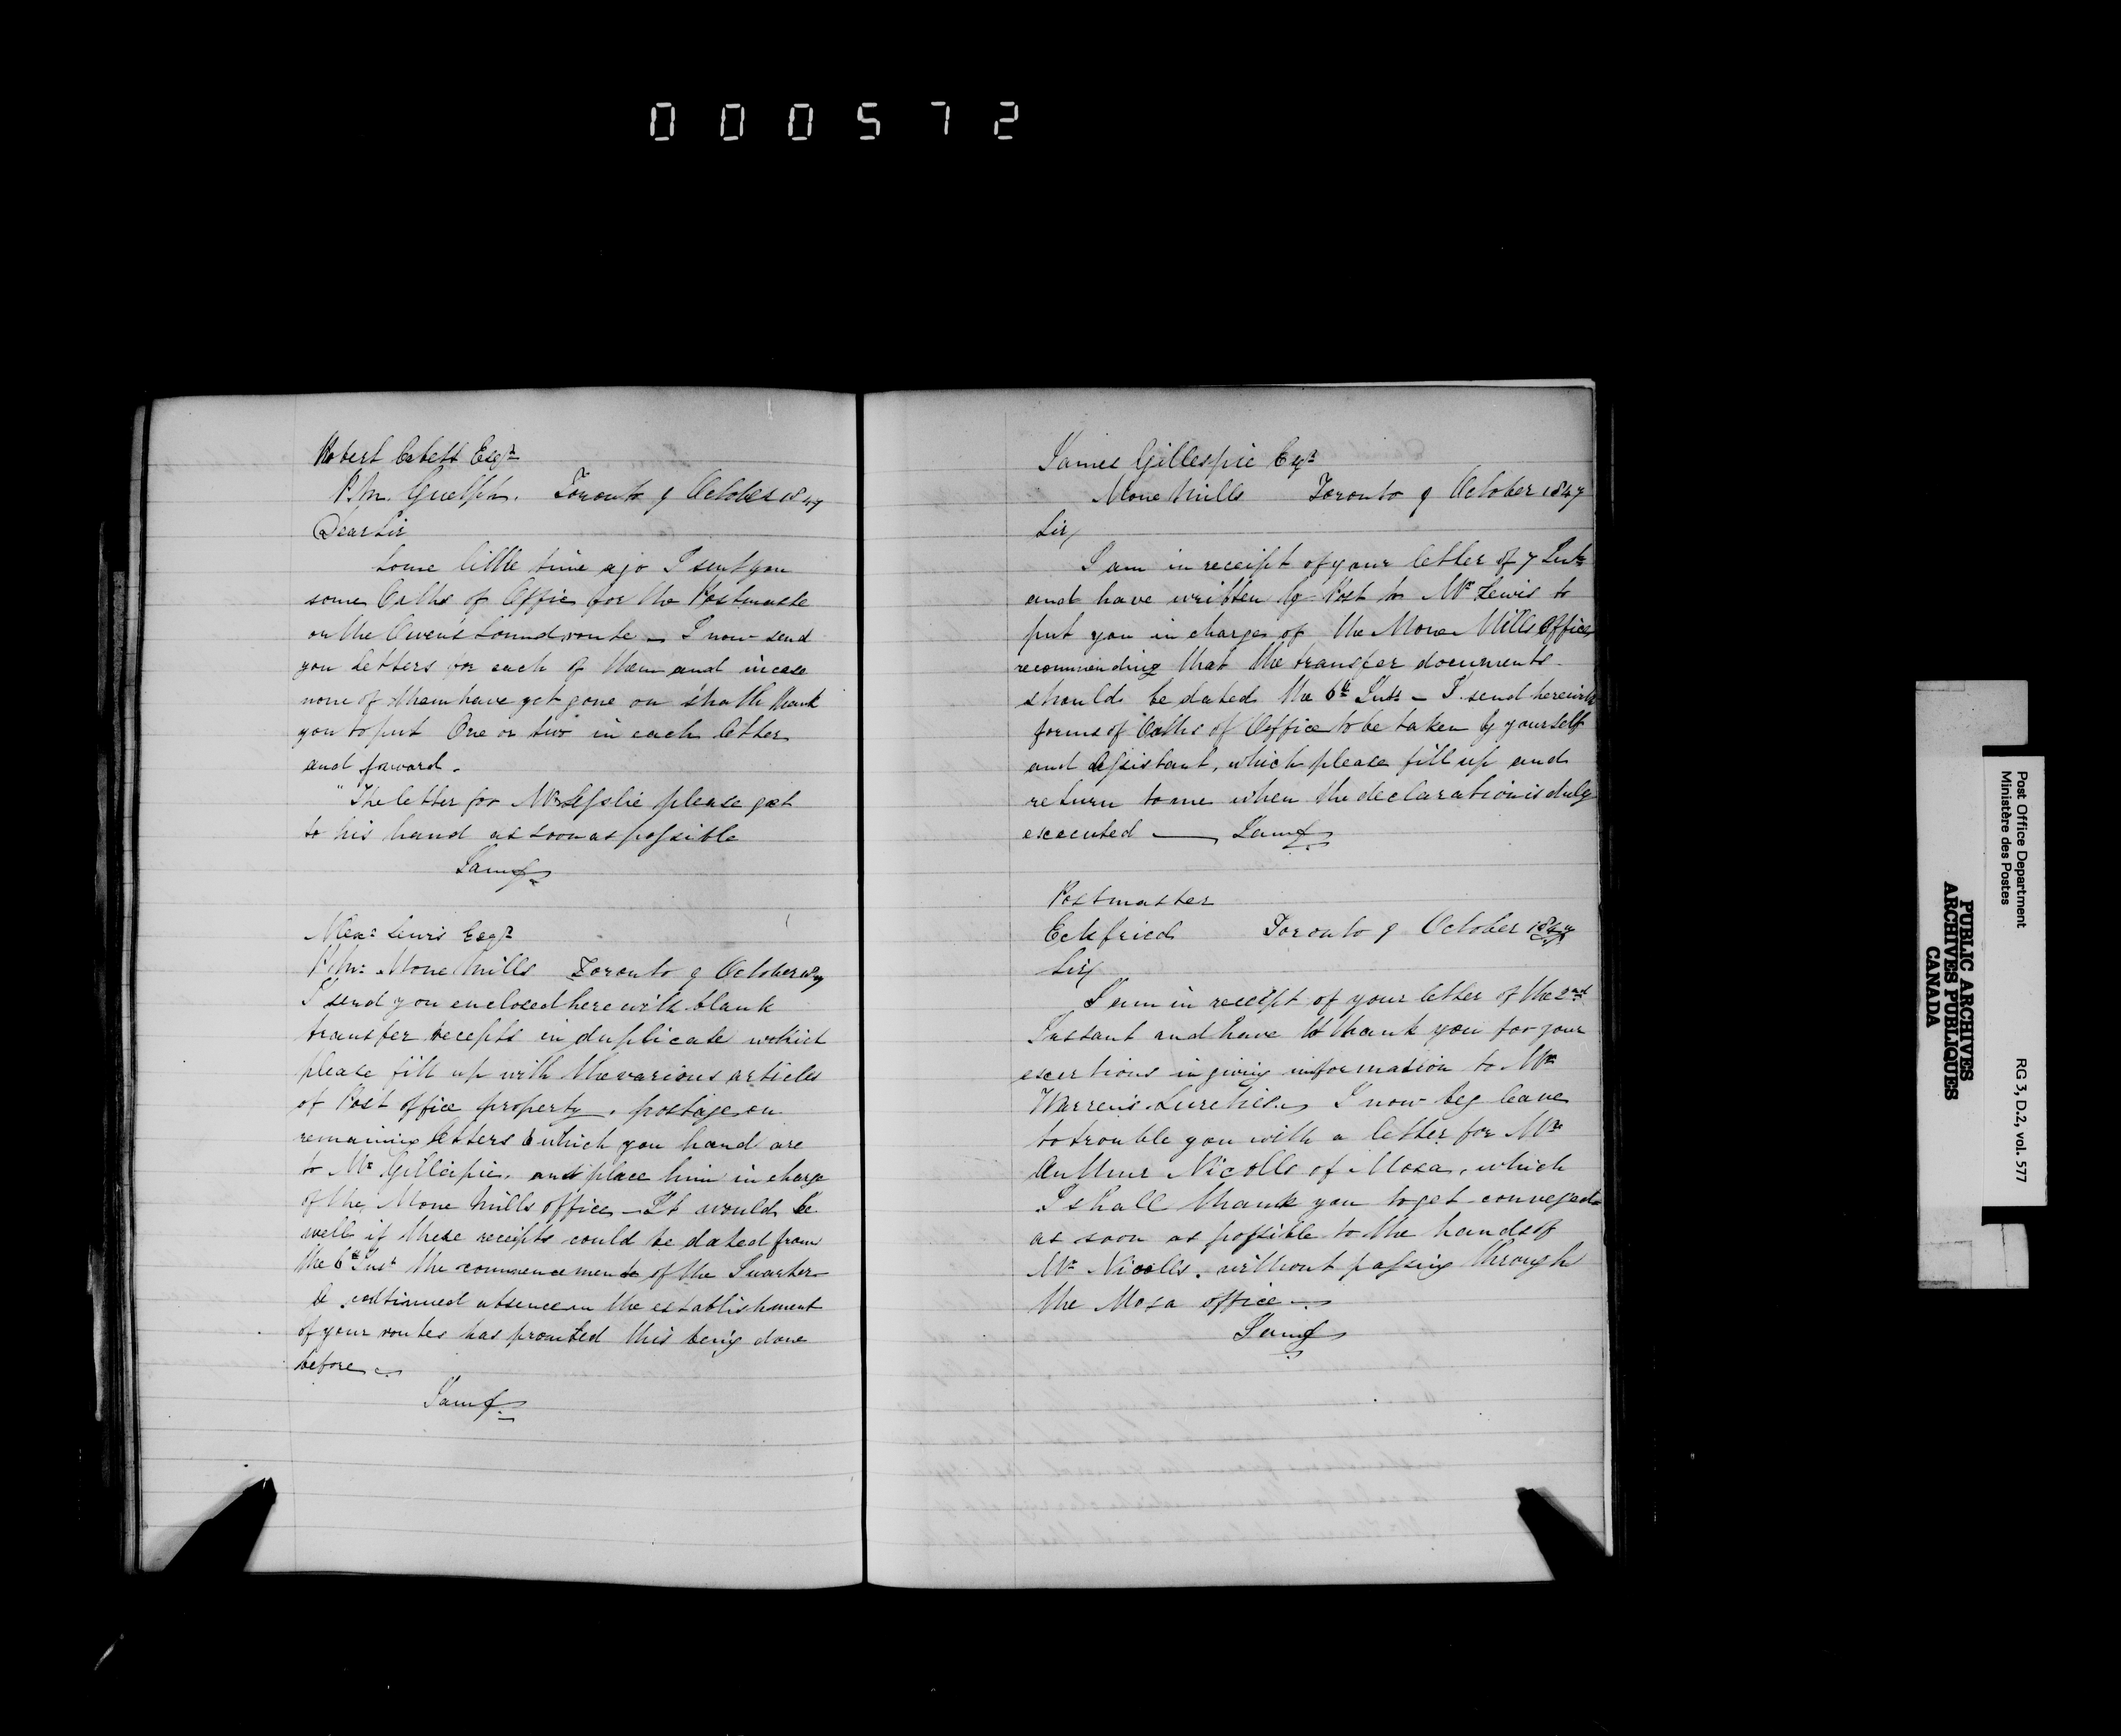 000572
Robert Corbett Esqr
P.M. Guelph. Toronto 9 October 1847
Dear Sir
Some little time ago I sent you
some Oaths of Office for the Postmaste
on the Owen's Sound route – I now send
you letters for each of them and incase
none of them have yet gone on shall thank
you to put One or two in each letter
and forward.
"The letter for Mr Lesslie please get
to his hand as soon as possible
I am &c
Alexr Lewis Esqr
P.Mr Mono Mills Toronto 9 October 1847
I send you enclosed herewith blank
transfer receipts in duplicate which
please fill up with the various articles
of Post office property, postage on
remaining letters & which you hand are
to Mr Gillespie. and place him in charge
of the Mono Mills office – It would be
well if these receipts could be dated from
the 6th Inst the commencement of the Quarter
continued absence on the establishment
of your routes has prevented this being done
before
I am &c
James Gillespie Esqr
Mono Mills Toronto 9 October 1847
Sir/
I am in receipt of your letter of 7 Inst
and have written by Post to Mr Lewis to
put you in charge of the Mono Mills Office
recommending that the transfer documents
should be dated the 6th Inst – I send herewith
forms of Oaths of Office to be taken by yourself
and Assistant, which please fill up and
return to me when the declaration is duly
executed — I am &c
Postmaster
Eckfried Toronto 9 October 1847
Sir/
I am in receipt of your letter of the 2nd
Instant and have to thank you for your
exertions in giving information to Mr
Warren's Sureties. I now beg leave
to trouble you with a letter for Mr
Arthur Nicolls of Mosa, which
I shall thank you to get conveyed
as soon as possible to the hands of
Mr Nicolls. without passing through
the Mosa office —
I am &c
Post Office Department
Ministère des Postes
RG 3, D.2, vol. 577
PUBLIC ARCHIVES
ARCHIVES PUBLIQUES
CANADA